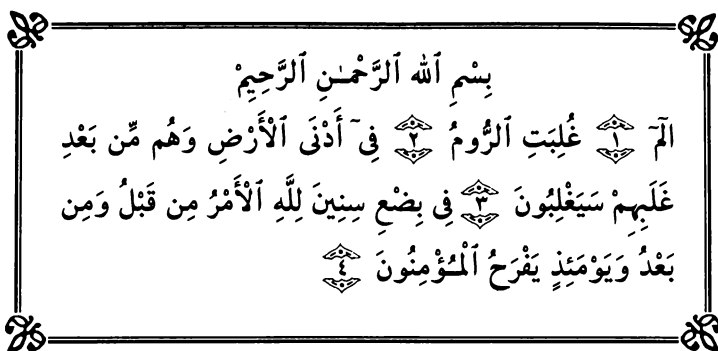 بِسْمِ ٱللَّهِ ٱلرَّحْمَـٰنِ ٱلرَّحِيمِْ
الٓمٓ ١ غُلِبَتِ ٱلرُّومُ ٢ فِىٓ أَدْنَى ٱلْأَرْضِ وَهُم مِّن بَعْدِ
غَلَبِهِمْ سَيَغْلِبُونَ ٣ فِى بِضْعِ سِنِينَ لِلَّهِ ٱلْأَمْرُ مِن قَبْلُ وَمِن
بَعْدُ وَيَوْمَئِذٍ يَفْرَحُ ٱلْمُؤْمِنُونَ ٤